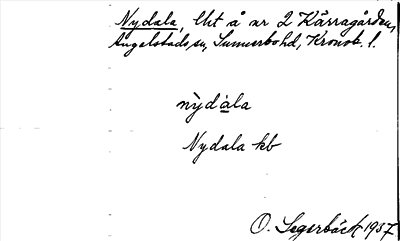 Nydala, lht å nr 2 Kärragården,
Angelstads sn, Sunnerbo hd, Kronob. l.
nỳdàla
Nydala kb
O. Segerbäck 1937